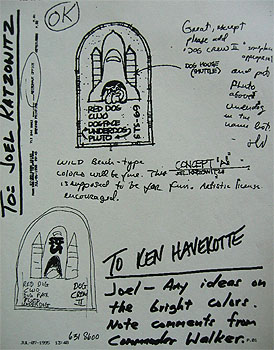 TO: JOEL KATZOWITZ
OK
Great, except
please add
"DOG CREW II"
and put
Pluto
above
Underdog
in
the name list
DOG HOUSE
(SHUTTLE)
RED DOG
CUJO
DOGFACE
UNDERDOG
PLUTO
STS-69
WILD Beach-type
colors will be fine. This
is supposed to be for fun. Artistic license
encouraged.
CONCEPT "A"
RED DOG
CUJO
DOG FACE
PLUTO
UNDERDOG
DOG
CREW
II
TO KEN HAVEKOTTE
Joel - Any ideas on
the bright colors.
Note comments from
Commander Walker.
631 8600
JUL-07-1995 13:48
P.01